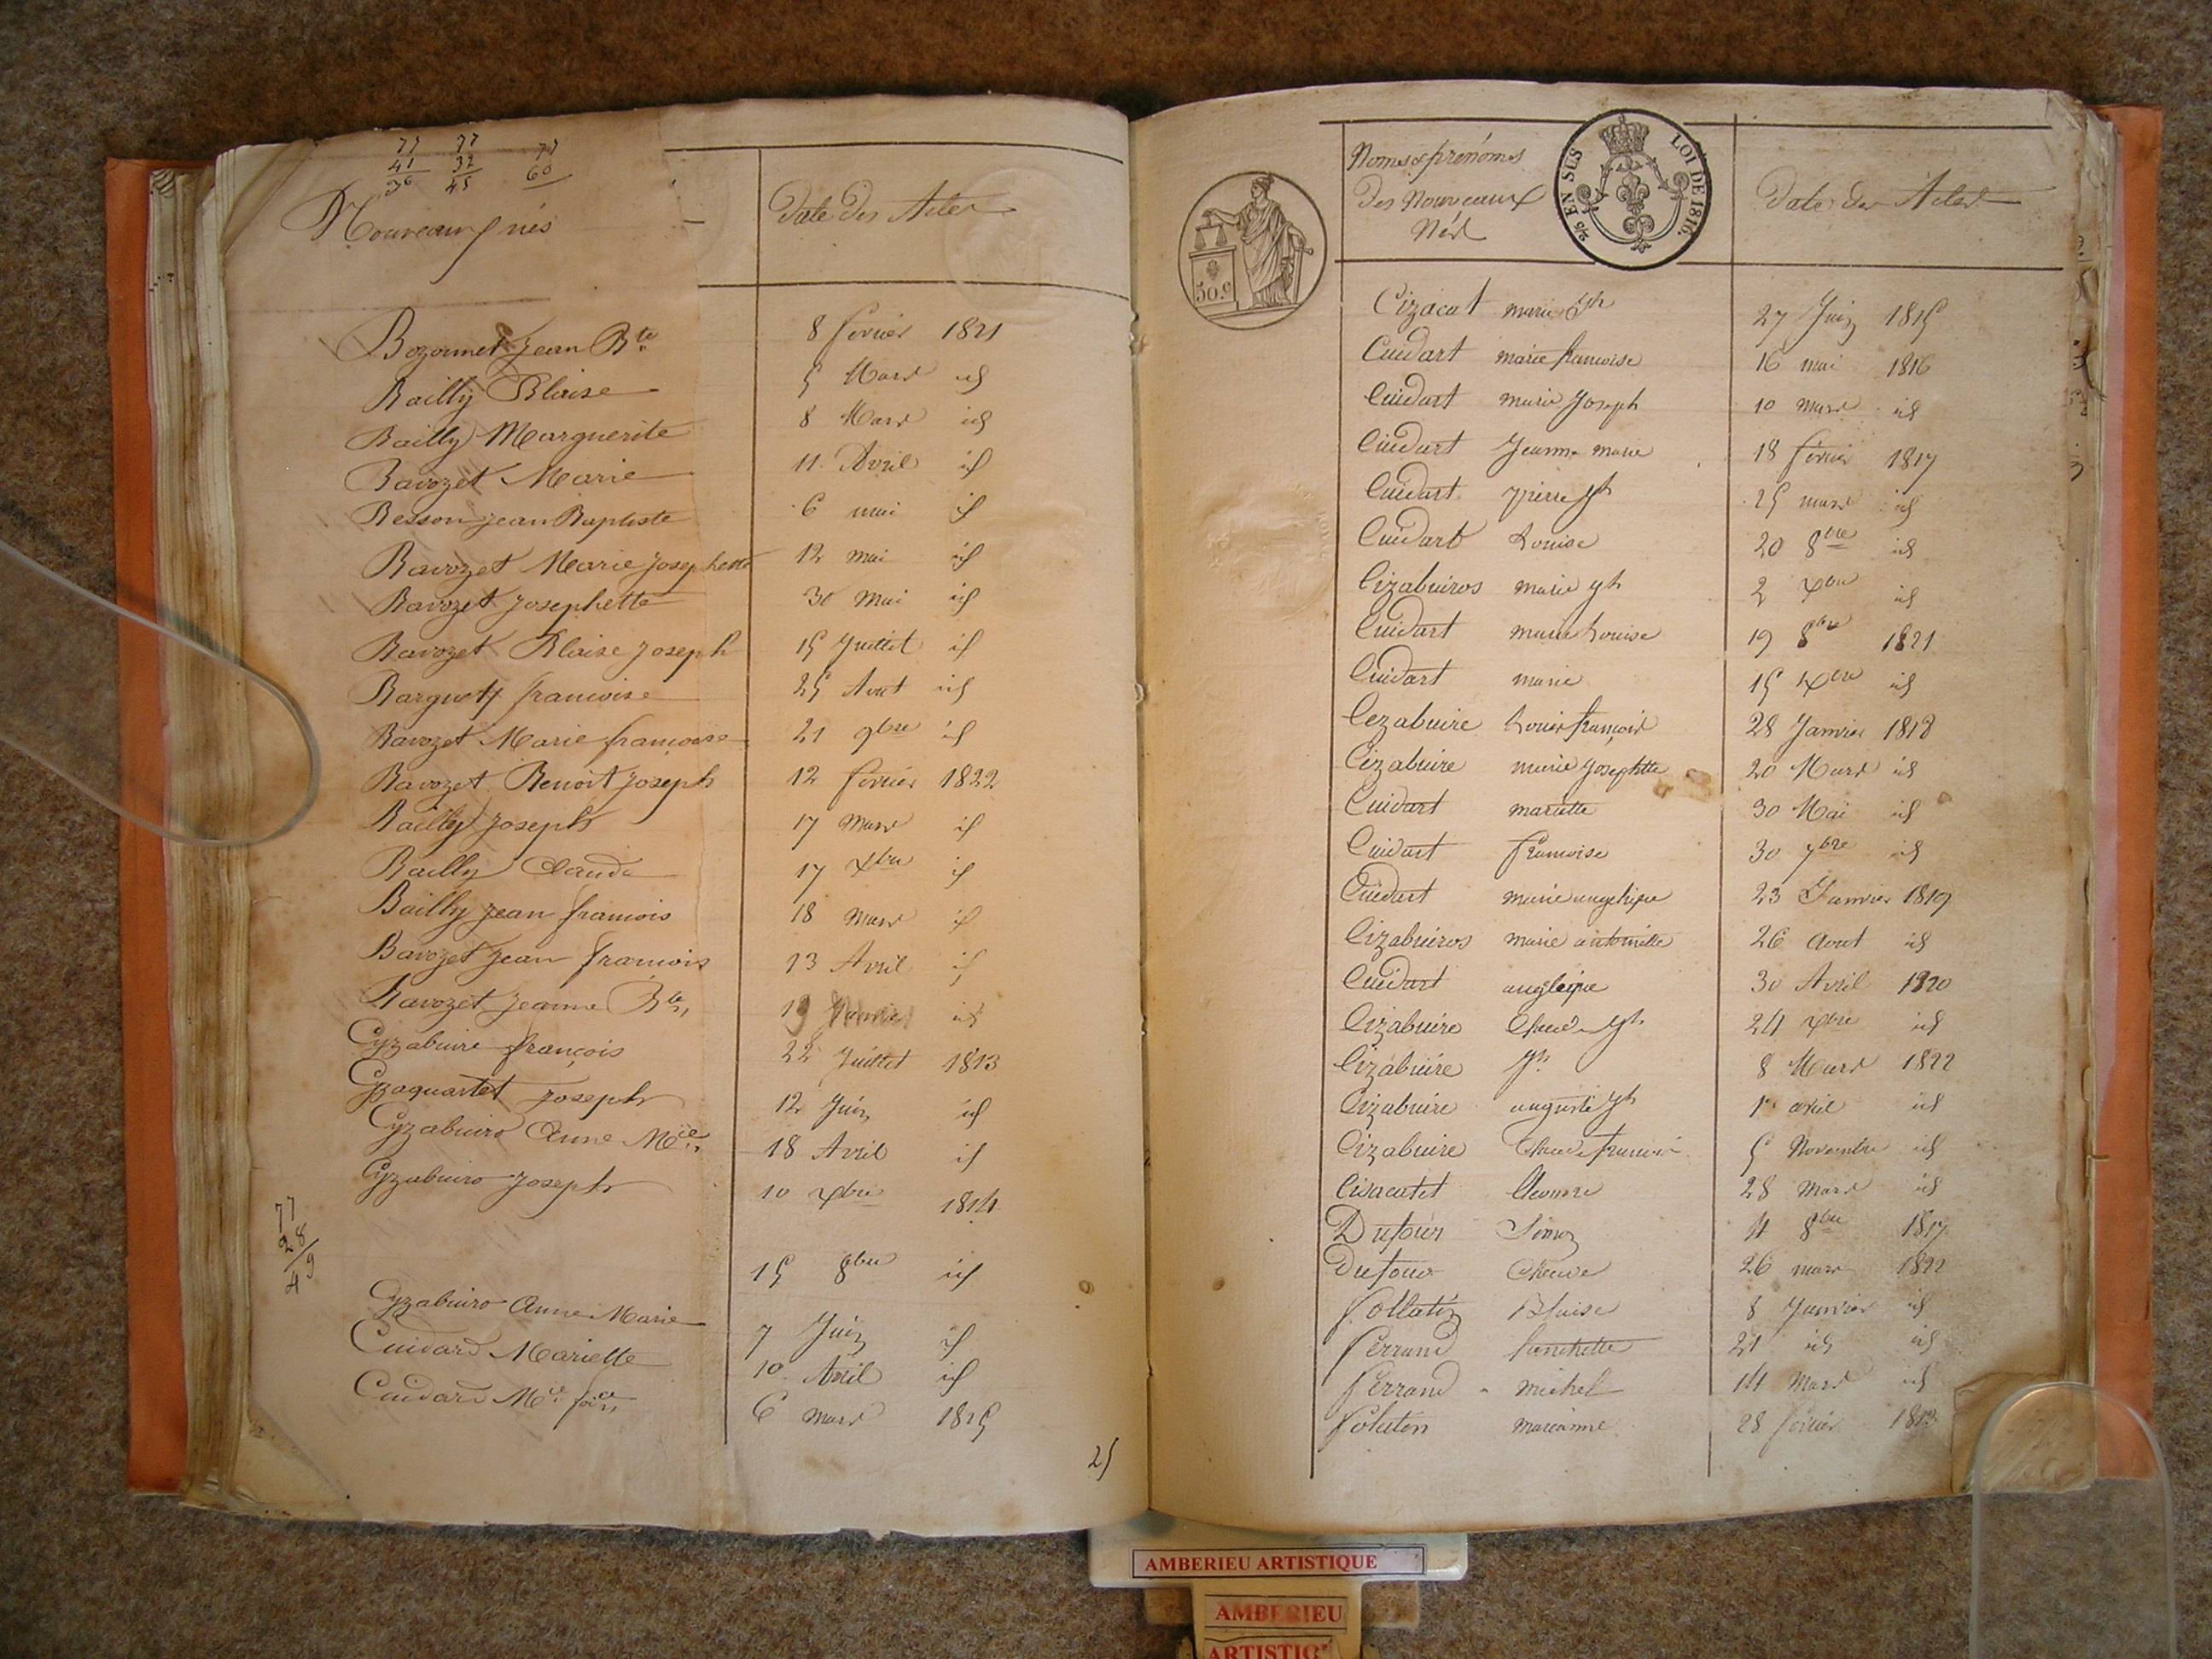 77 77 77
41 32 60
36 45
Nouveaux nés
Date des Actes
Bozonnet Jean Bte 8 février 1821
Bailly Blaise 5 Mars id
Bailly Marguerite 8 Mars id
Bavozet Marie 11 Avril id
Besson jean Baptiste 6 mai id
Bavozet Marie Josephette 12 mai id
Bavozet Josephette 30 Mai id
Bavozet Blaise Joseph 15 Juillet id
francoise 25 Aout id
Bavozet Marie françoise 21 9bre id
Bavozet Benoit Joseph 12 février 1822
Bailly Joseph 17 Mars id
Bailly Claude 17 Xbre id
Bailly Jean francois 18 Mars id
Bavozet Jean francois 13 Avril id
Bavozet Jeanne Bte 19 id
Cyzabuire françois 22 Juillet 1813
Joseph 12 Juin id
Cyzabuiro Anne Mie 18 Avril id
Cyzabuiro Joseph 10 Xbre 1814
15 8bre id
77
28
49
Cyzabuiro Anne Marie 7 Juin id
Cuidard Mariette 10 Avril id
Cuidard Mie 6 Mars 1815
25
50.c
Noms & prénoms
des Nouveaux
Nés
25 EN SUS
LOI DE 1816.
Date des Actes
Cizacat marie Jh 27 Juin 1815
Cuidart marie francoise 16 mai 1816
Cuidart marie Joseph 10 mars id
Cuidart Jeanne marie 18 février 1817
Cuidart pierre Jh 25 mars id
Cuidart Louise 20 8bre id
Cizabuiros marie Jh 2 Xbre id
Cuidart marie Louise 19 8bre 1821
Cuidart marie 15 Xbre id
Cezabuire Louis françois 28 Janvier 1818
Cizabuire marie Josephette 20 Mars id
Cuidart mariette 30 Mai id
Cuidart francoise 30 7bre id
Cuidart marie angelique 23 Janvier 1819
Cizabuiros marie antoinette 26 Aout id
Cuidart 30 Avril 1820
Cizabuire Claude Jh 24 Xbre id
Cizabuire Jh 8 Mars 1822
Cizabuire auguste Jh 1r avril id
Cizabuire Claude francois 5 Novembre id
28 Mars id
Dufour Simon 4 8bre 1817
Dufour Claude 26 mars 1822
Blaise 8 Janvier id
Ferrand fanchette 21 id id
Ferrand michel 14 Mars id
marianne 28 février
AMBERIEU ARTISTIQUE
AMBERIEU
ARTISTIQ